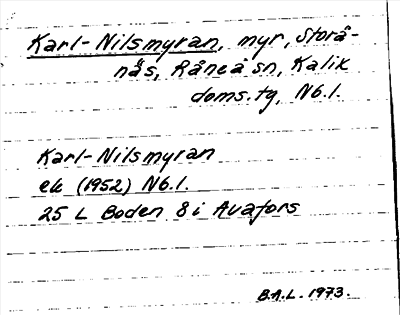 Karl-Nilsmyran, myr, Storå-
näs, Råneå sn, Kalix
doms.tg, N6.1.
Karl-Nilsmyran
ek (1952) N6.1.
25 L Boden 8i Avafors
B.A.L. 1973.